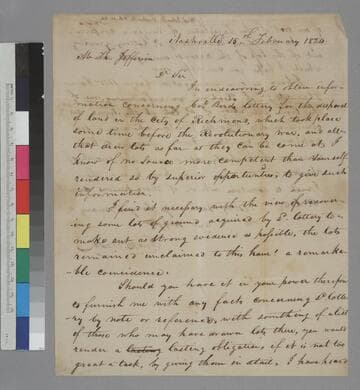 Nashville 15th February 1820.
Mr Th. Jefferson
Dr Sir
In endeavoring to obtain infor-
mation concerning Col Birds lottery for the disposal
of land in the City of Richmond, which took place
some time before the Revolutionary war, and all
that drew lots as far as they can be come at, I
know of no source more competent than Yourself
rendered so by superior opportunities, to give such
information.
I find it necessary with the view of recover-
ing some lots of ground acquired by Sd. lottery to
make out as strong evidence as possible, the lots
remained unclaimed to this hour! a remarka-
ble coincidence.
Should you have it in your power therefore
to furnish me with any facts concerning Sd. Lotte-
ry by note or reference, with something of a list
of those who may have drawn lots there, you would
render a lasting obligation, if it is not too
great a task, by giving them in detail. I have heard